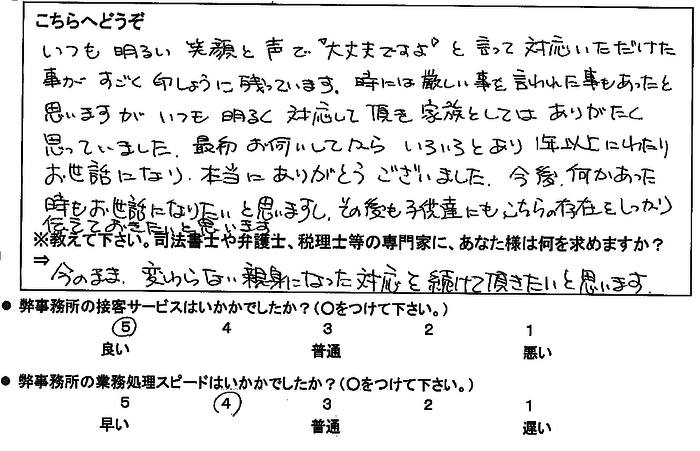 こちらへどうぞ
いつも 明るい 笑顔と 声で "大丈夫ですよ" と 言って 対応いただけた
事が すごく 印しょうに 残っています。時には 厳しい事を 言われた事もあったと
思いますが いつも 明るく 対応して 頂き 家族としては ありがたく
思っていました。最初 お伺いしてから いろいろとあり 1年以上にわたり
お世話になり、本当に ありがとう ございました。今後、何かあった
時もお世話になりたいと思いますし、その後も子供達にもこちらの存在をしっかり
伝えておきたいと思います
※教えて下さい。司法書士や弁護士、税理士等の専門家に、あなた様は何を求めますか？
⇒
今のまま、変わらない親身になった対応を続けて頂きたいと思います。
● 弊事務所の接客サービスはいかかでしたか？（○をつけて下さい。）
5 4 3 2 1
良い 普通 悪い
● 弊事務所の業務処理スピードはいかかでしたか？（○をつけて下さい。）
5 4 3 2 1
早い 普通 遅い